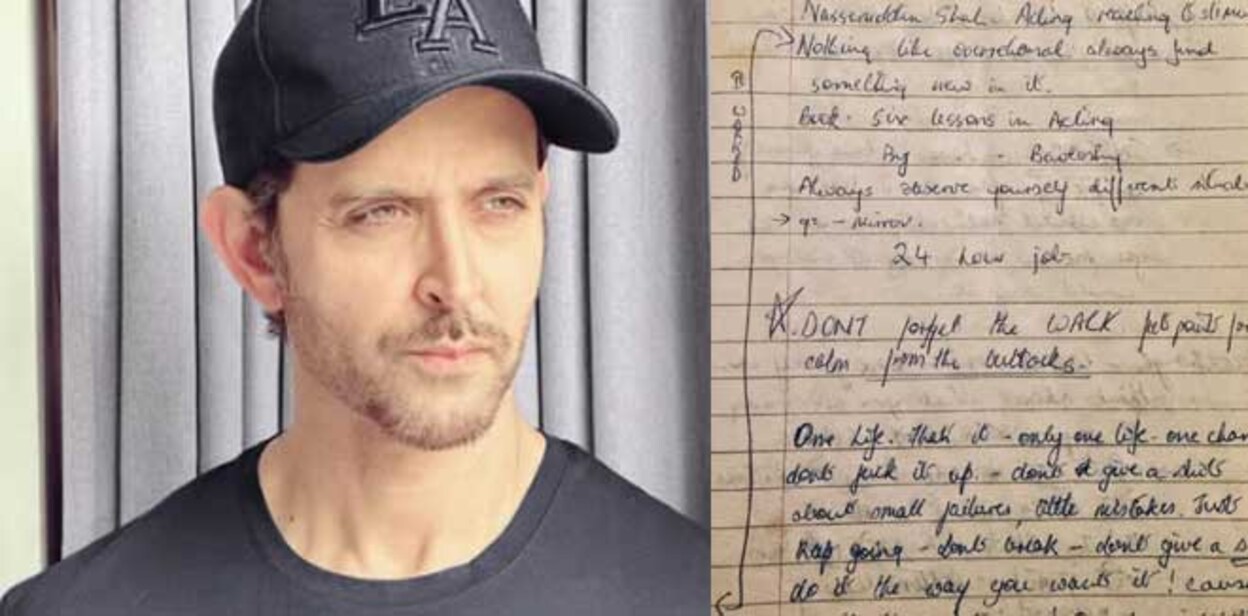 LA
Nasseruddin Shah. Acting reaching
Nothing like overrehearsal always find
something new in it.
REWARD
Book. Six lessons in Acting
By - - 
Always observe yourself different
→ - mirror.
24 hour job
DONT forget the WALK
calm from the buttocks.
One life. Thats it - only one life - one
dont fuck it up. - dont give a shit
about small failures, little mistakes. Just
Keep going - dont break - dont give a
do it the way you want it! cause